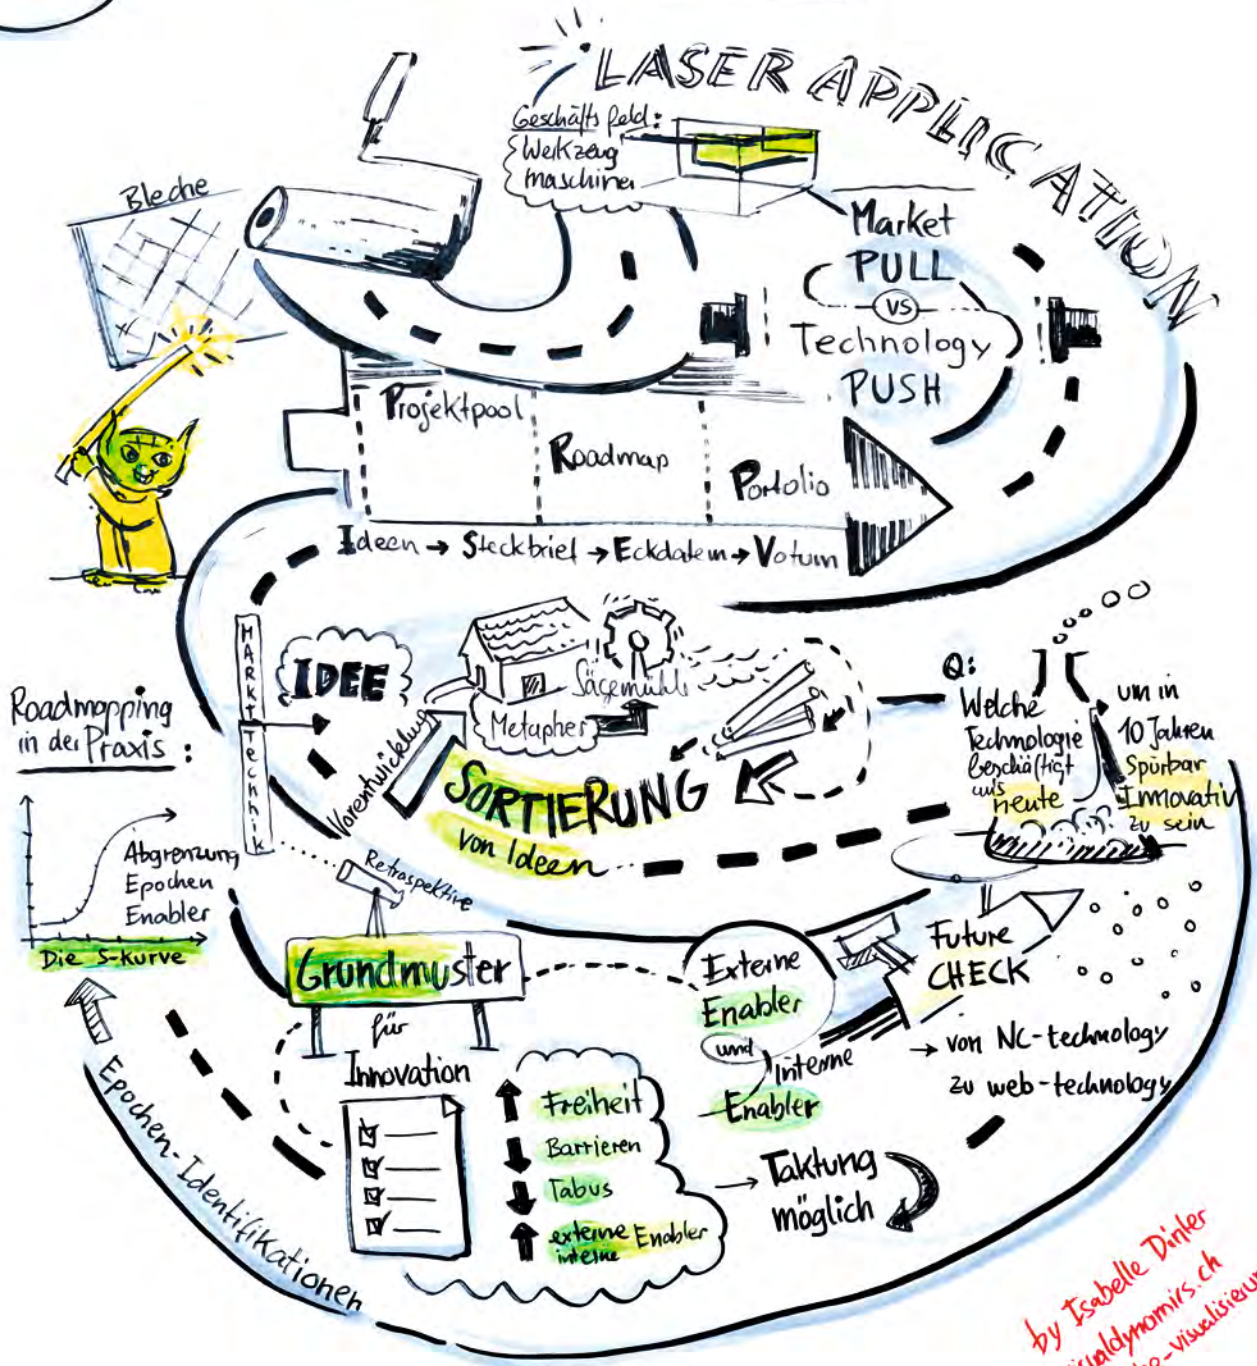 LASER APPLICATION
Geschäftsfeld:
Werkzeug
maschinen
Bleche
Market
PULL
VS
Technology
PUSH
Projektpool
Roadmap
Portolio
Ideen → Steckbrief → Eckdaten → Votum
MARKT Technik
IDEE
Vorentwicklung
Sägemühle
Metapher
SORTIERUNG
von Ideen
Q:
Welche
Technologie
beschäftigt
uns
heute
um in
10 Jahren
Spürbar
Innovativ
zu sein
Roadmapping
in der Praxis:
Abgrenzung
Epochen
Enabler
Die S-Kurve
Retrospektive
Grundmuster
für
Innovation
Externe
Enabler
und
interne
Enabler
Future
CHECK
→ von NC-technology
zu web-technology
Freiheit
Barrieren
Tabus
externe
interne Enabler
→ Taktung
möglich
Epochen-Identifikationen
by Isabelle Dinter